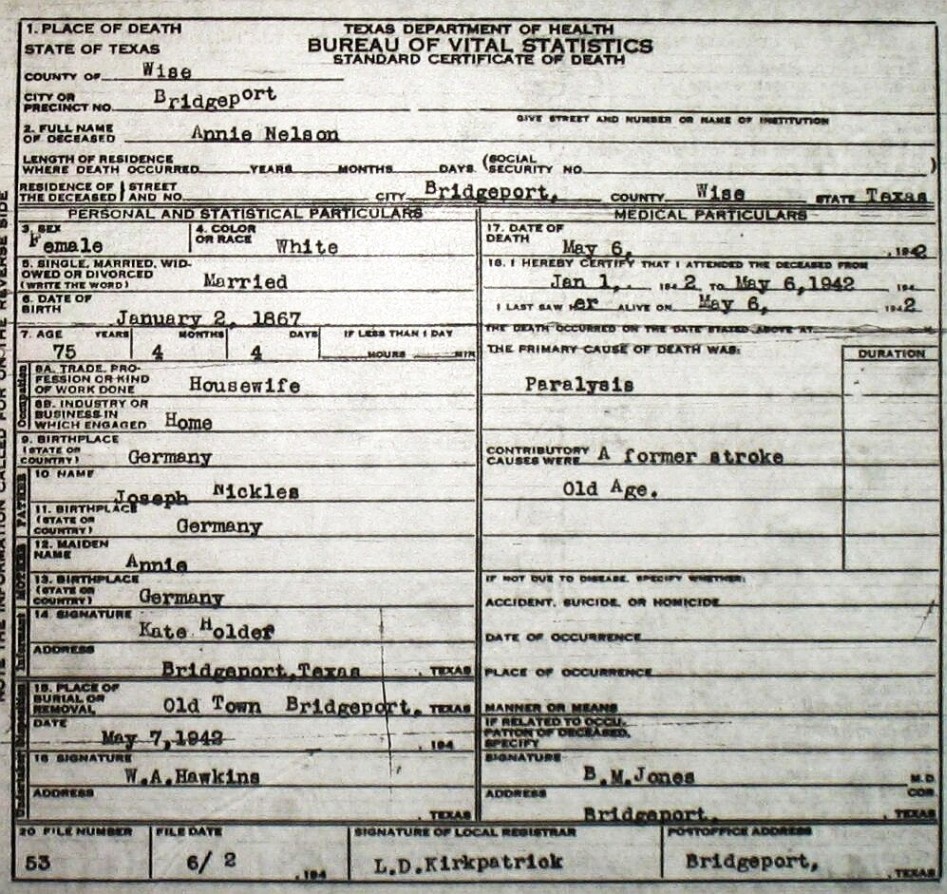 TEXAS DEPARTMENT OF HEALTH
BUREAU OF VITAL STATISTICS
STANDARD CERTIFICATE OF DEATH
1. PLACE OF DEATH
STATE OF TEXAS
COUNTY OF Wise
CITY OR PRECINCT NO. Bridgeport
GIVE STREET AND NUMBER OR NAME OF INSTITUTION
2. FULL NAME OF DECEASED Annie Nelson
LENGTH OF RESIDENCE WHERE DEATH OCCURRED YEARS MONTHS DAYS (SOCIAL SECURITY NO. )
RESIDENCE OF THE DECEASED STREET AND NO. CITY Bridgeport, COUNTY Wise STATE Texas
PERSONAL AND STATISTICAL PARTICULARS
3. SEX Female
4. COLOR OR RACE White
5. SINGLE, MARRIED, WIDOWED OR DIVORCED (WRITE THE WORD) Married
6. DATE OF BIRTH January 2, 1867
7. AGE YEARS MONTHS DAYS IF LESS THAN 1 DAY
75 4 4 HOURS MIN
Occupation
8A. TRADE, PROFESSION OR KIND OF WORK DONE Housewife
8B. INDUSTRY OR BUSINESS IN WHICH ENGAGED Home
9. BIRTHPLACE (STATE OR COUNTRY) Germany
FATHER
10 NAME Joseph Nickles
11. BIRTHPLACE (STATE OR COUNTRY) Germany
MOTHER
12. MAIDEN NAME Annie
13. BIRTHPLACE (STATE OR COUNTRY) Germany
Informant
14 SIGNATURE Kate Holder
ADDRESS Bridgeport,Texas , TEXAS
15. PLACE OF BURIAL OR REMOVAL Old Town Bridgeport, TEXAS
DATE May 7,1942 , 194
16 SIGNATURE W.A.Hawkins
ADDRESS , TEXAS
MEDICAL PARTICULARS
17. DATE OF DEATH May 6, , 1942
18. I HEREBY CERTIFY THAT I ATTENDED THE DECEASED FROM
Jan 1,. 194 2 TO May 6,1942 194
I LAST SAW H er ALIVE ON May 6, 194 2
THE DEATH OCCURRED ON THE DATE STATED ABOVE AT
THE PRIMARY CAUSE OF DEATH WAS: DURATION
Paralysis
CONTRIBUTORY CAUSES WERE A former stroke
Old Age.
IF NOT DUE TO DISEASE, SPECIFY WHETHER:
ACCIDENT, SUICIDE, OR HOMICIDE
DATE OF OCCURRENCE
PLACE OF OCCURRENCE
MANNER OR MEANS
IF RELATED TO OCCUPATION OF DECEASED, SPECIFY
SIGNATURE B.M.Jones M.D.
COR
ADDRESS Bridgeport, , TEXAS
20 FILE NUMBER FILE DATE SIGNATURE OF LOCAL REGISTRAR POSTOFFICE ADDRESS
53 6/ 2 , 194 L.D.Kirkpatrick Bridgeport, , TEXAS